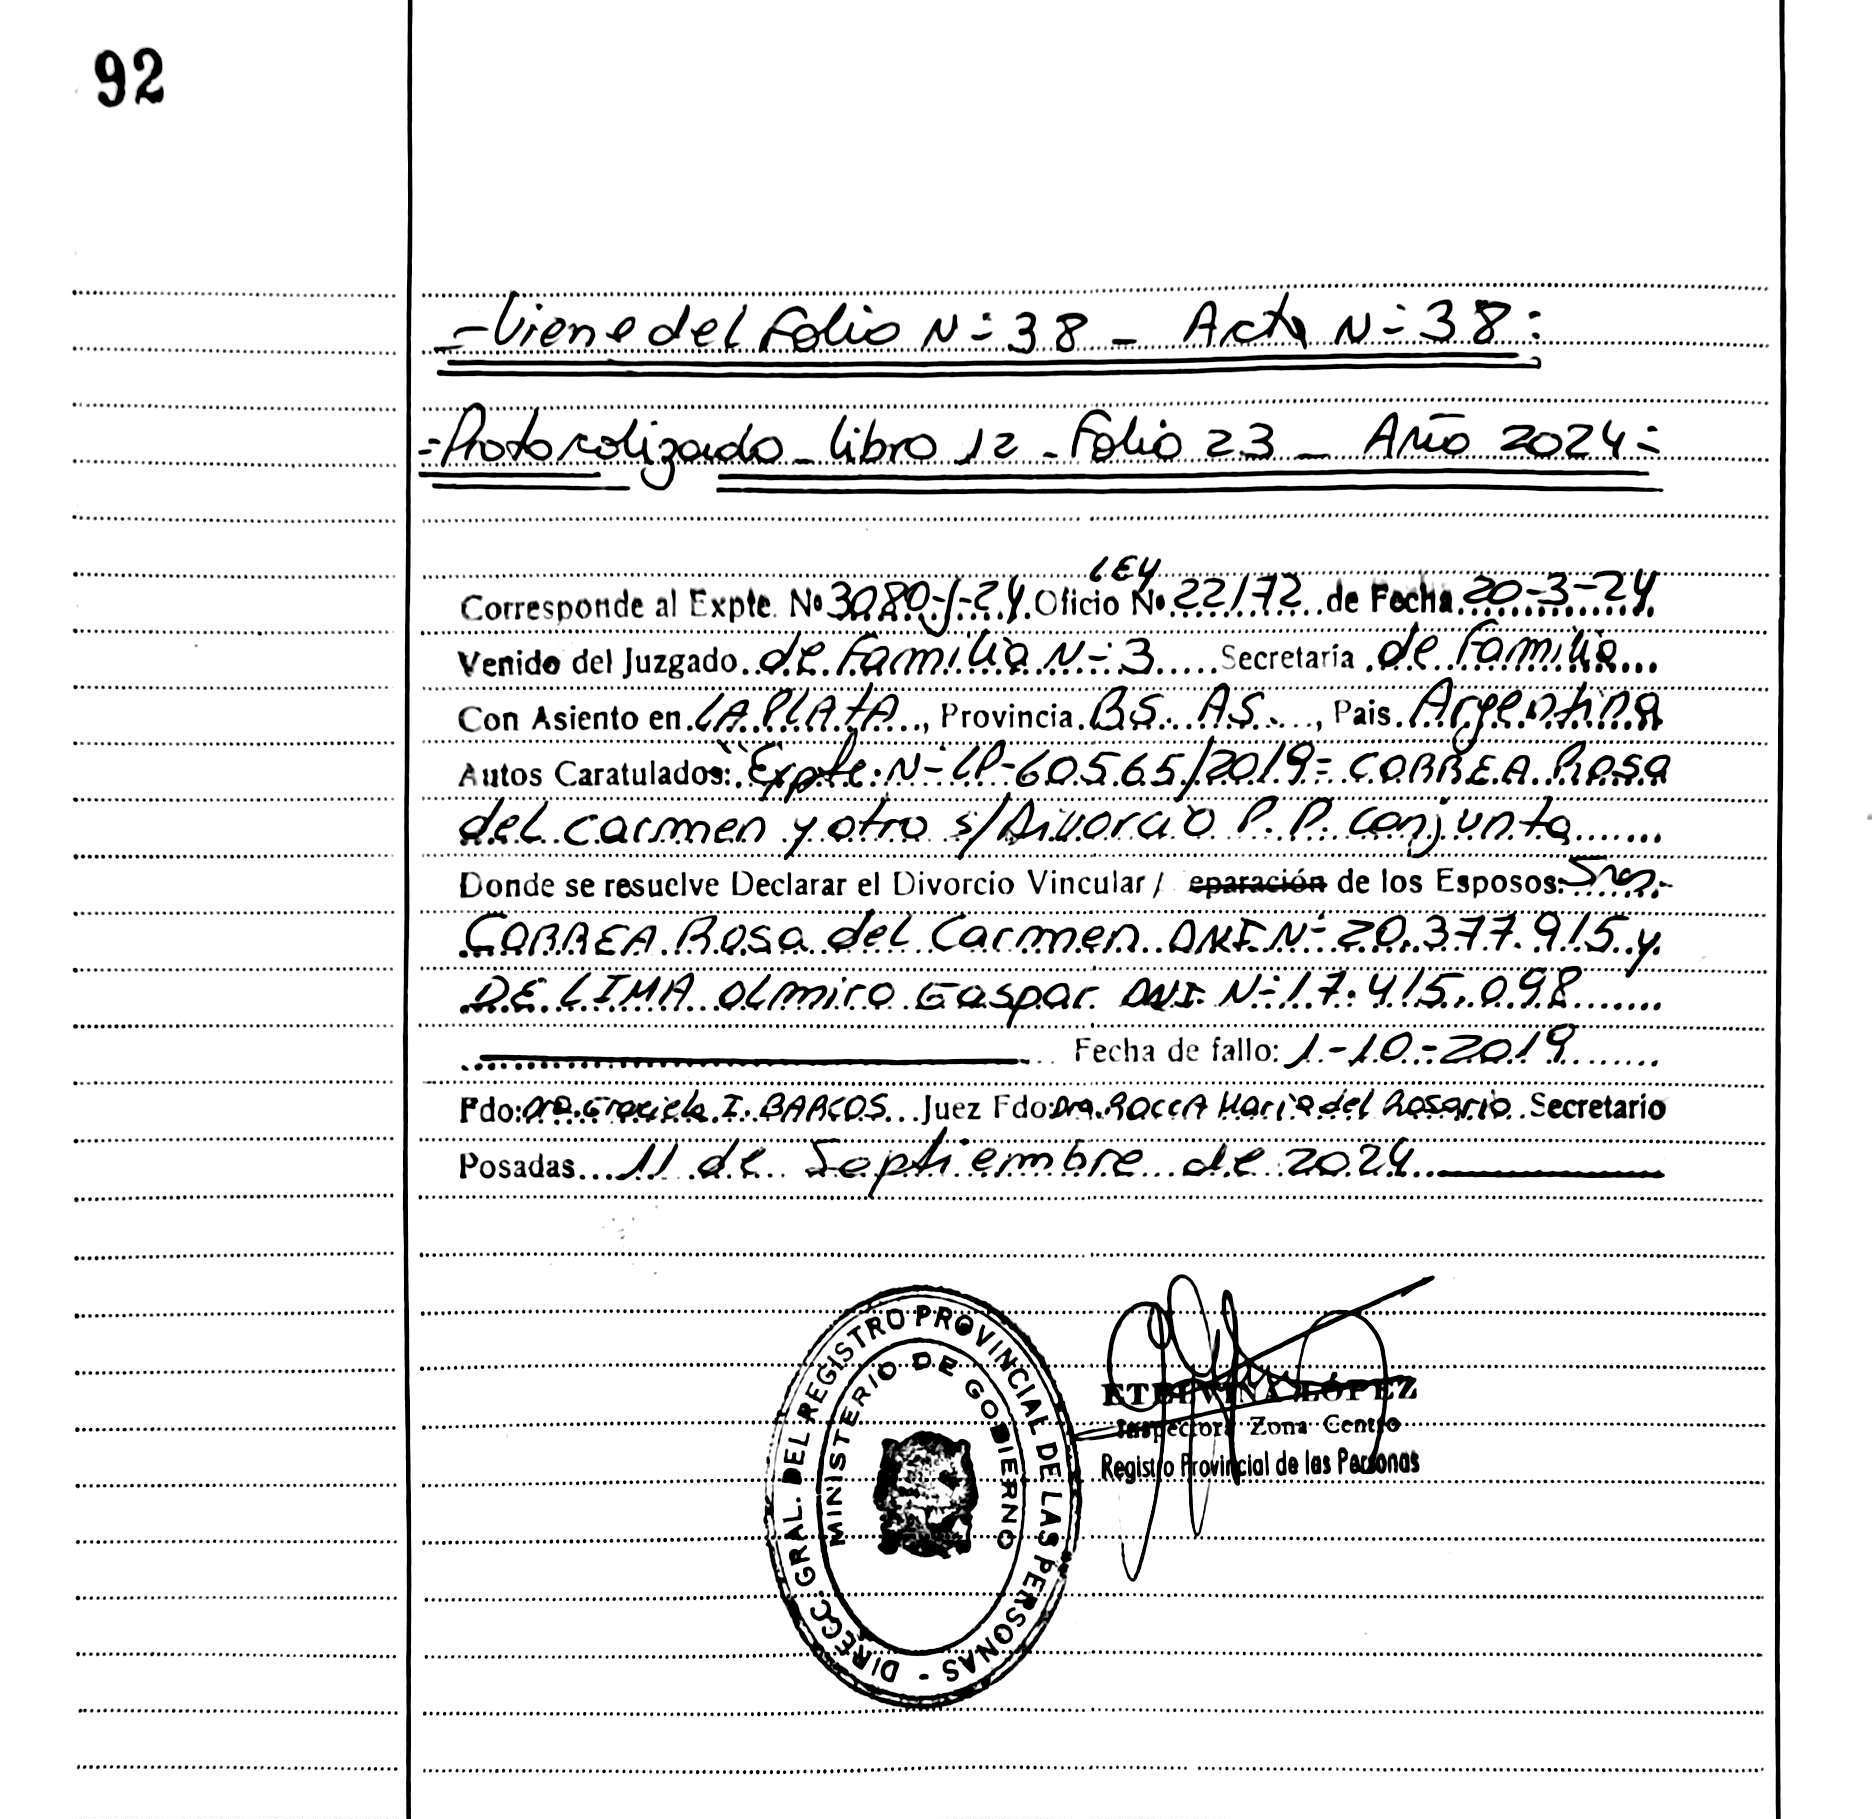 92
- Viene del Folio N° 38 - Acta N° 38:
= Protocolizado - libro 12 - Folio 23 - Año 2024 =
LEY
Corresponde al Expte. Nº 3080-J-24. Oficio Nº 22172 de Fecha 20-3-24
Venido del Juzgado de Familia N° 3 Secretaría de Familia
Con Asiento en LA PLATA, Provincia BS. AS., Pais Argentina
Autos Caratulados: "Expte. N° LP-60565/2019= CORREA Rosa
del carmen y otro s/Divorcio P.P. conjunta
Donde se resuelve Declarar el Divorcio Vincular / eparación de los Esposos: Sres.
CORREA Rosa del Carmen DNI N° 20.377.915 y
DE LIMA Olmiro Gaspar DNI N° 17.415.098
Fecha de fallo: 1-10-2019
Fdo: Dra. Graciela I. BARCOS Juez Fdo: Dra. ROCCA Maria del Rosario Secretario
Posadas 11 de Septiembre de 2024
DIRECC. GRAL. DEL REGISTRO PROVINCIAL DE LAS PERSONAS -
MINISTERIO DE GOBIERNO
ETELVINA LÓPEZ
Inspectora Zona Centro
Registro Provincial de las Personas